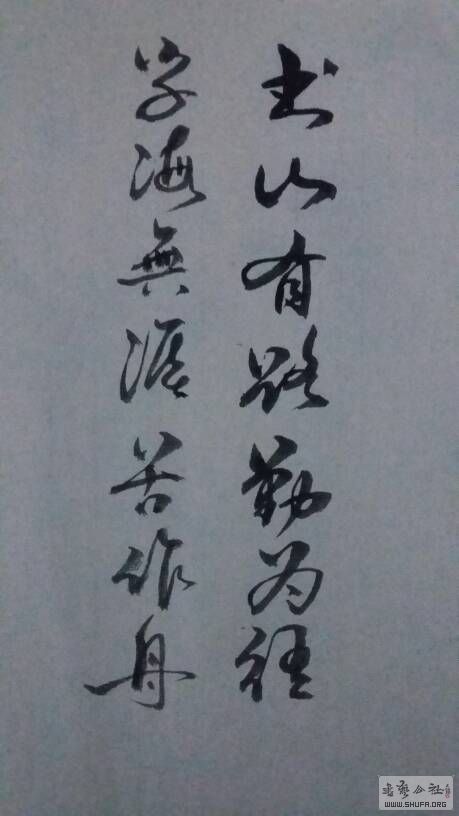 书山有路勤为径
学海無涯苦作舟
书艺公社
WWW.SHUFA.ORG